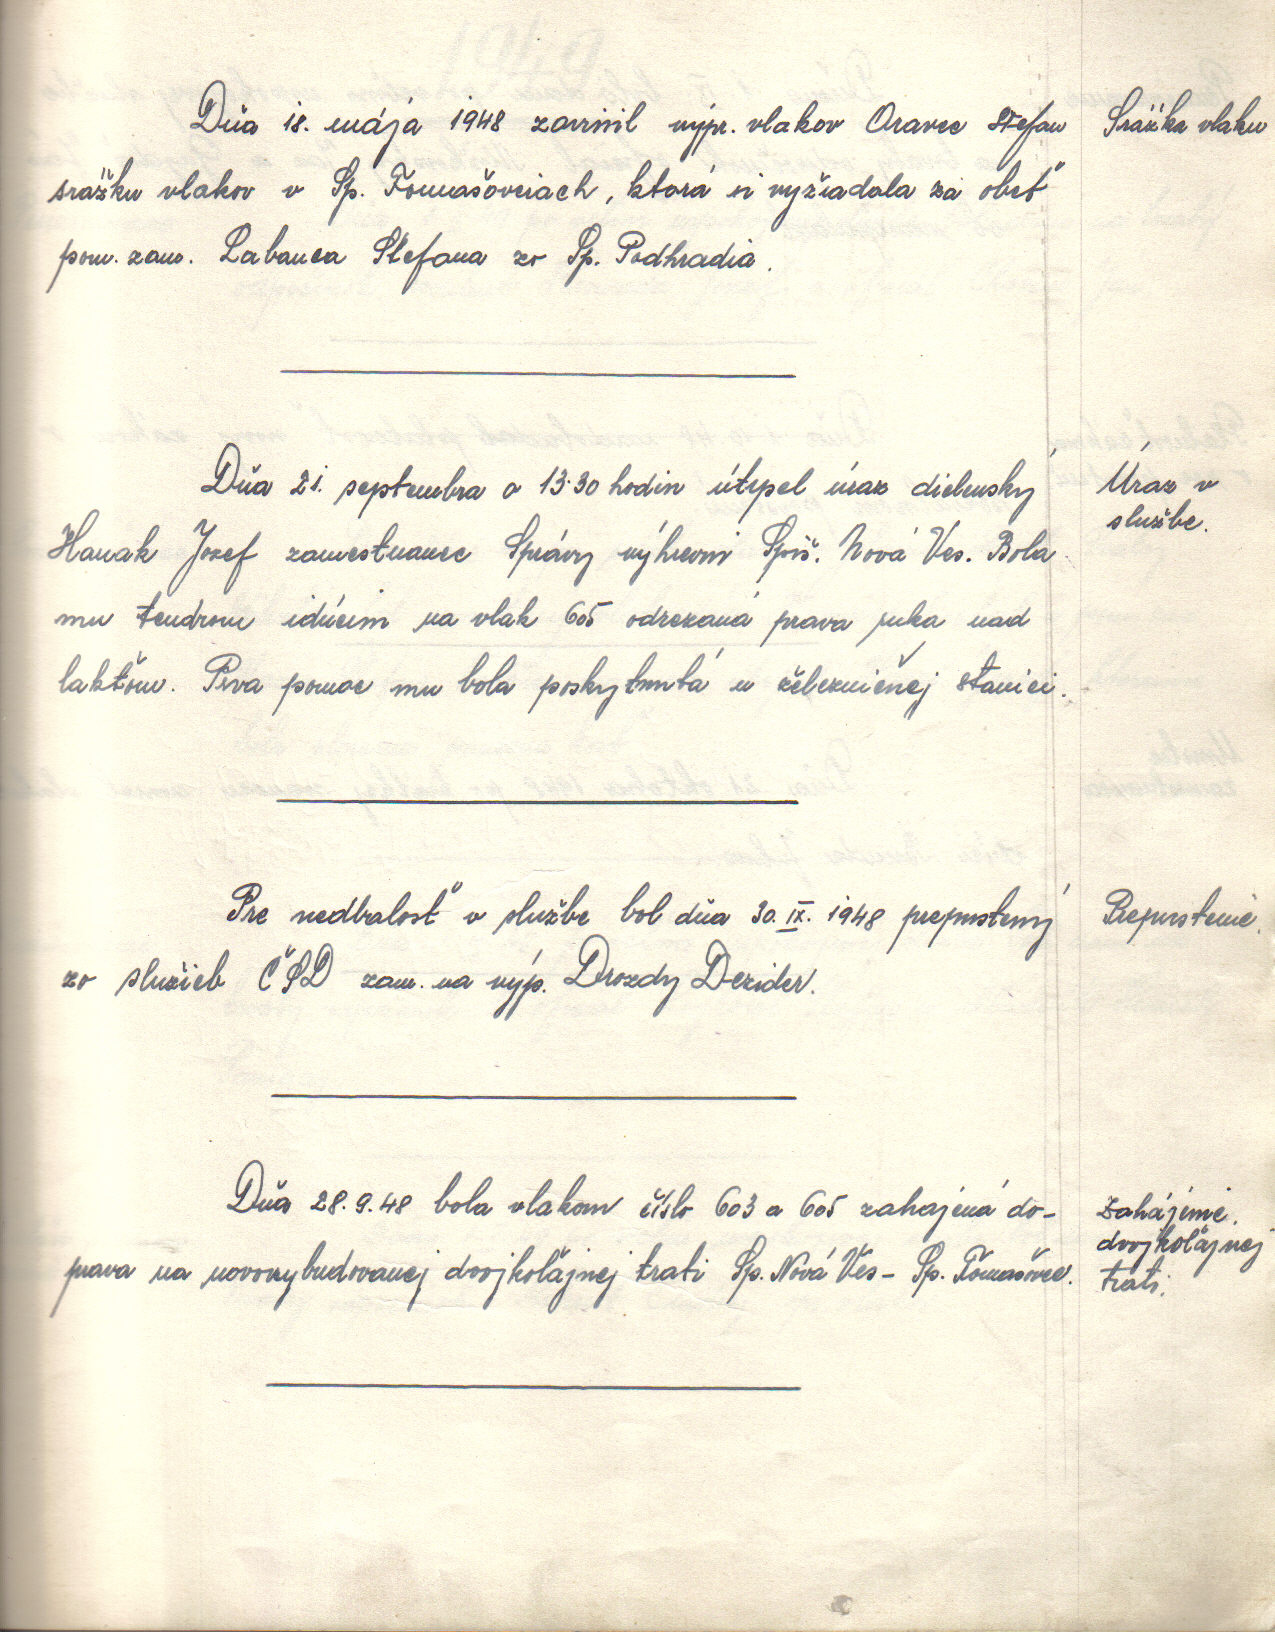 Dňa 18. mája 1948 zavinil výpr. vlakov Oravec Štefan
Srážka vlaku
srážku vlakov v Sp. Tomašovciach, ktorá si vyžiadala za obeť
pom. zam. Labanca Štefana zo Sp. Podhradia.
Dňa 21. septembra o 13.30 hodin útrpel úraz dielenský
Úraz v
službe.
Hanak Jozef zamestnanec Správy výhrevni Spiš. Nová Ves. Bola
mu tendrom idúcim na vlak 605 odrezaná prava ruka nad
lakťom. Prva pomoc mu bola poskytnutá v železničnej stanici.
Pre nedbalosť v službe bol dňa 30. IX. 1948 prepustený
Prepustenie.
zo služieb ČSD zam. na výp. Drozdy Dezider.
Dňa 28.9.48 bola vlakom číslo 603 a 605 zahajená do-
Zahájenie
dvojkoľajnej
trati.
prava na novovybudovanej dvojkoľajnej trati Sp. Nová Ves - Sp. Tomašovce.